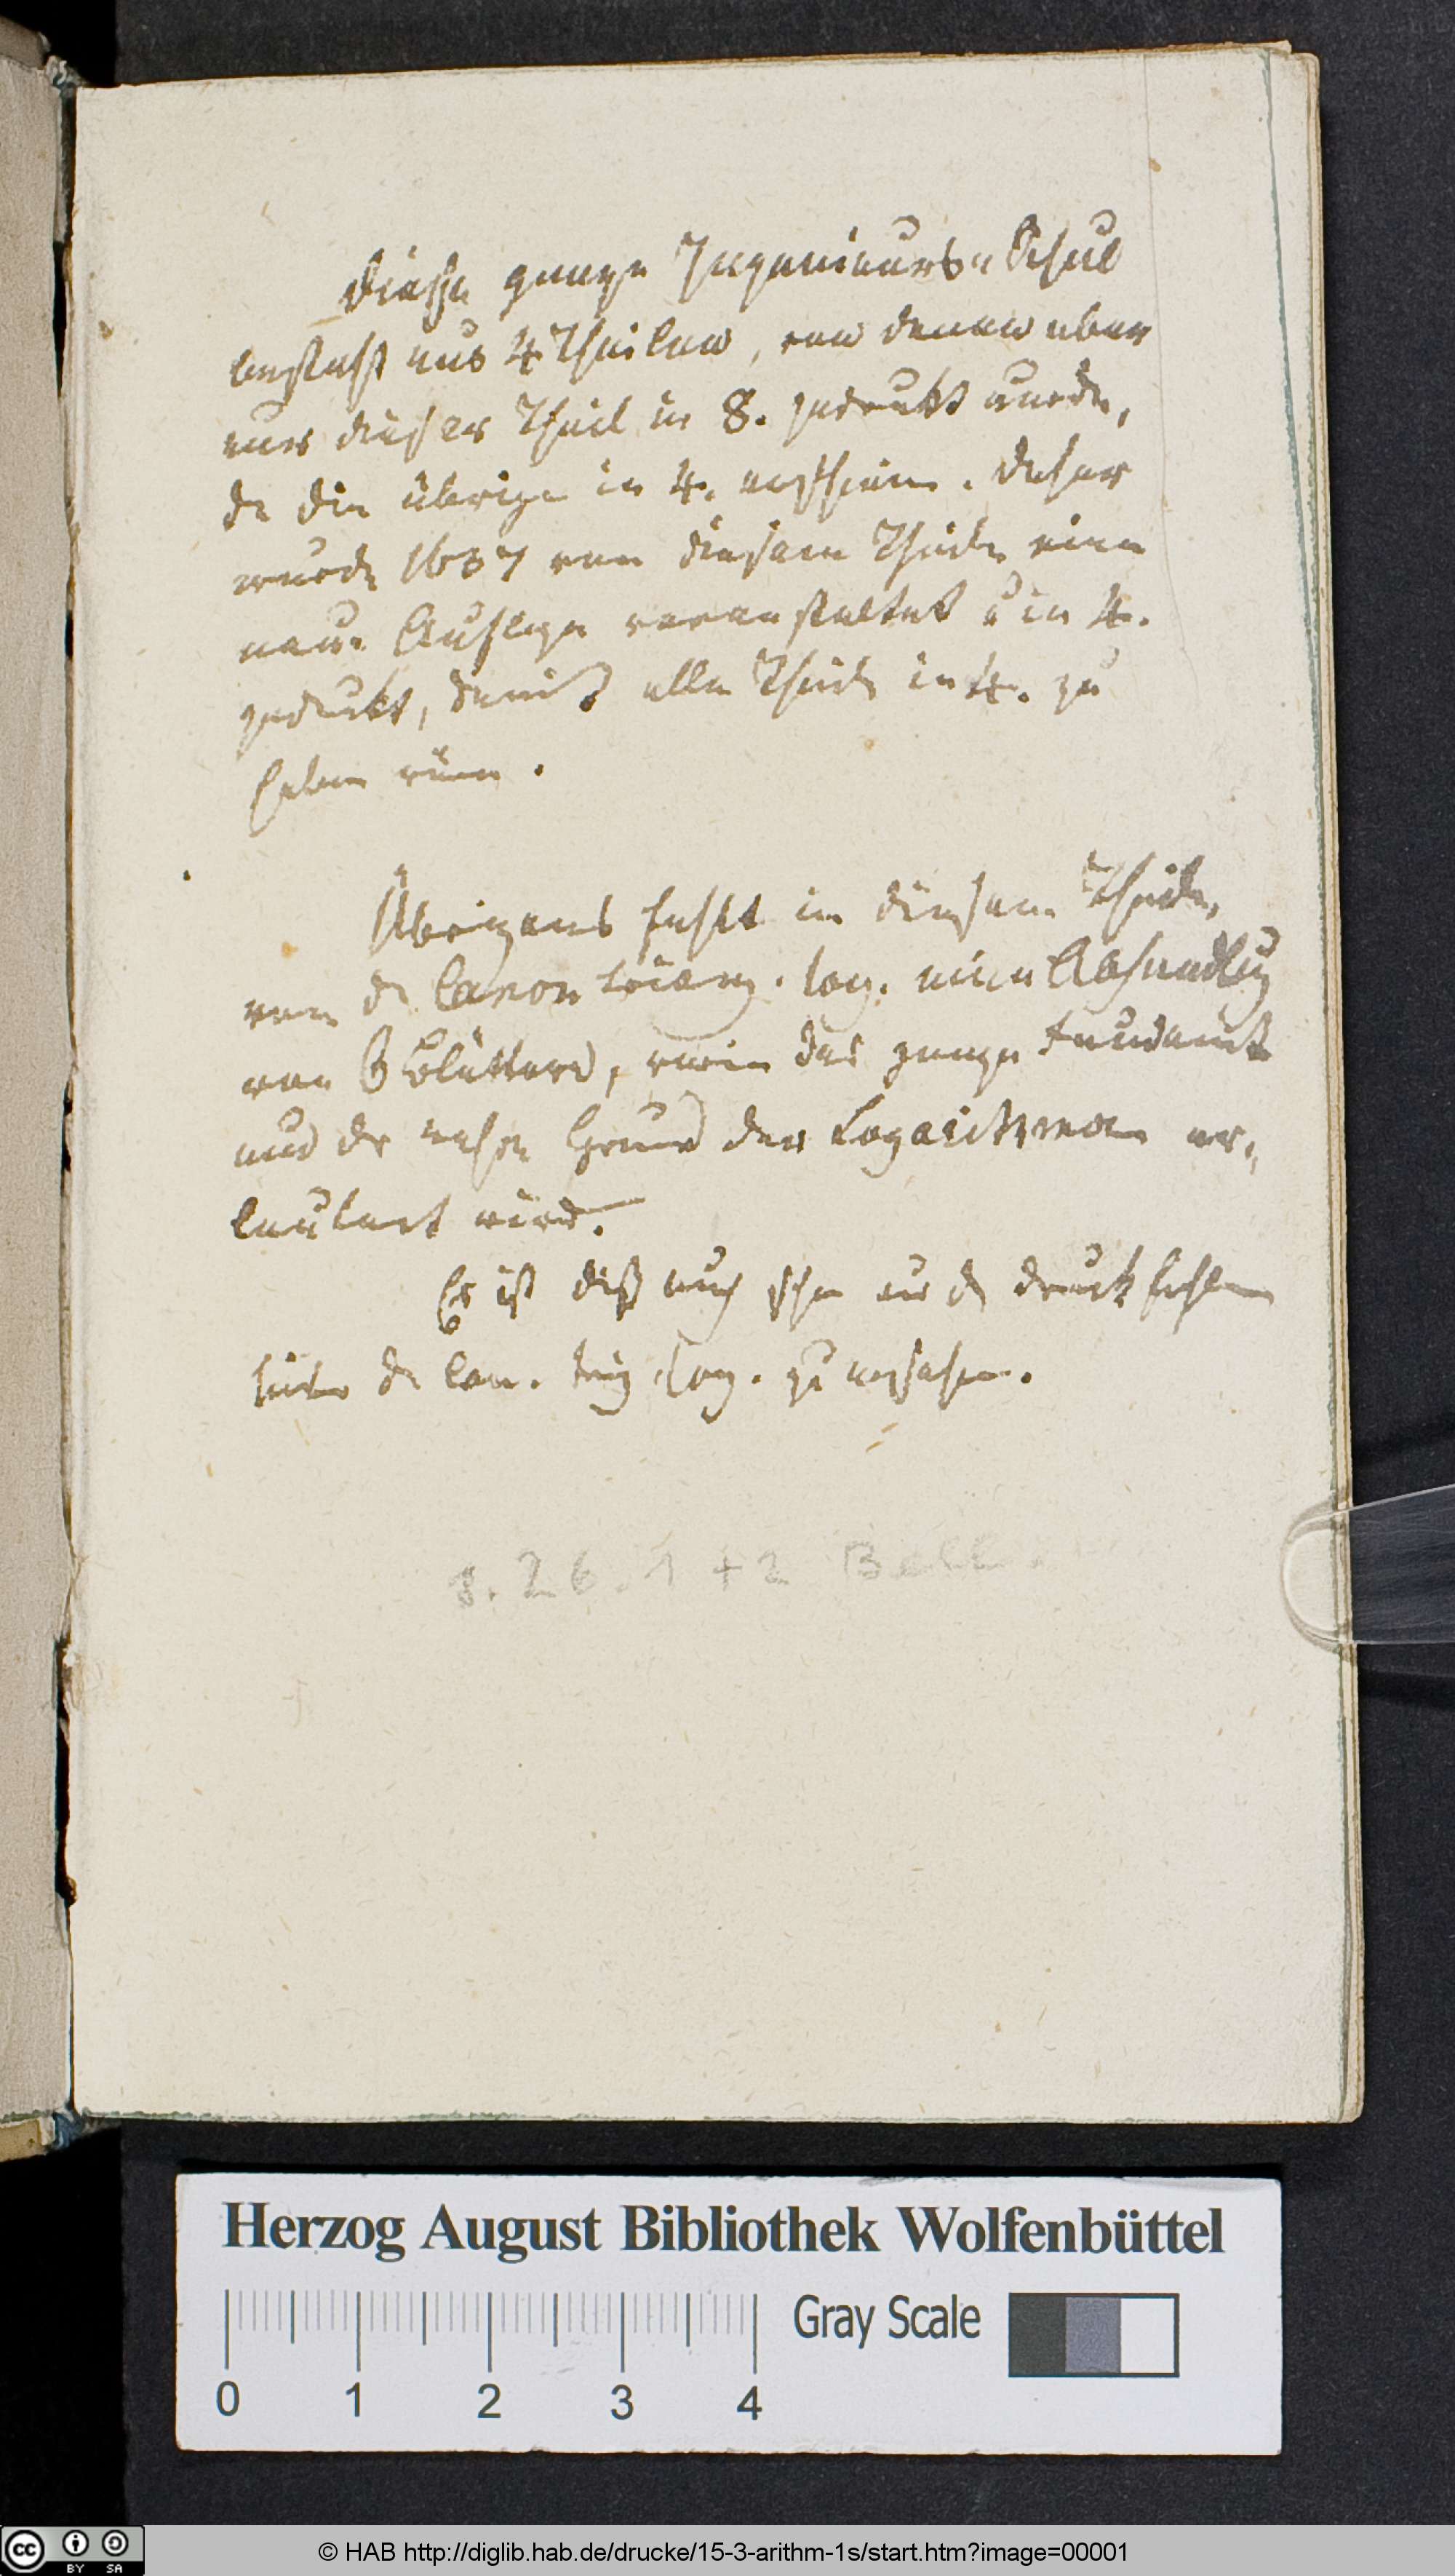 Diese ganze Ingenieurs-Schul
besteht aus 4 Theilen, von denen aber
nur dieser Theil in 8. gedrukt wurde,
da die übrige in 4. erschien. Daher
wurde 1637 von diesem Theile eine
neue Auflage veranstaltet u in 4.
gedrukt, damit alle Theile in 4. zu
haben
Übrigens fehlt in diesem Theile,
vor d Canon triang. log. eine Abhandlug
von Blättern, worin das ganze Fundamt
und der Grund der Logarithmen er-
läutert wird.
Es ist diß auch aus d druckfehlern
hinter d Can. trig. log. zu ersehen.
8.26.1+2 Bell.
Herzog August Bibliothek Wolfenbüttel
Gray Scale
0 1 2 3 4
cc BY SA © HAB http://diglib.hab.de/drucke/15-3-arithm-1s/start.htm?image=00001